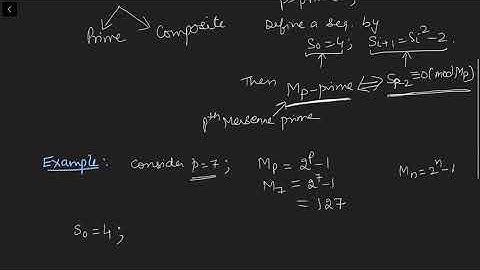 Prime Composite
Define a seq. by
S₀=4; Sᵢ₊₁=Sᵢ²-2.
Then Mp-prime ⟺ Sp-2≡0(mod Mp)
pᵗʰ Mersenne prime
Example: Consider p=7; Mp = 2ᵖ-1
M₇ = 2⁷-1
= 127
Mₙ=2ⁿ-1
S₀=4;